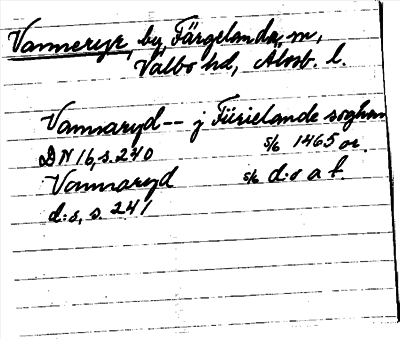 Vanneryr, by, Färgelanda, sn,
Valbo hd, Älvsb. l.
Vannaryd -- j Fürielande soghan
DN 16, s. 240 s/6 1465 or.
Vannaryd s/6 d:o a f.
d:o, s. 241